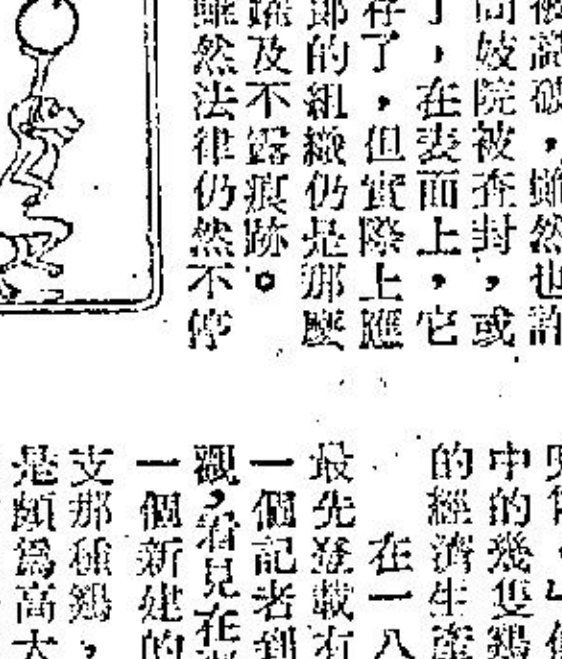 被說破，雖然也許
間妓院被查封，或
了，在表面上，它
存了，但實際上應
部的組織仍是那麼
及不露痕跡。
雖然法律仍然不停
中的幾隻鷄
的經濟生產
在一八
最先登載有
一個記者到
觀，看見在
一個新建的
支那種鷄，
是頗爲高大